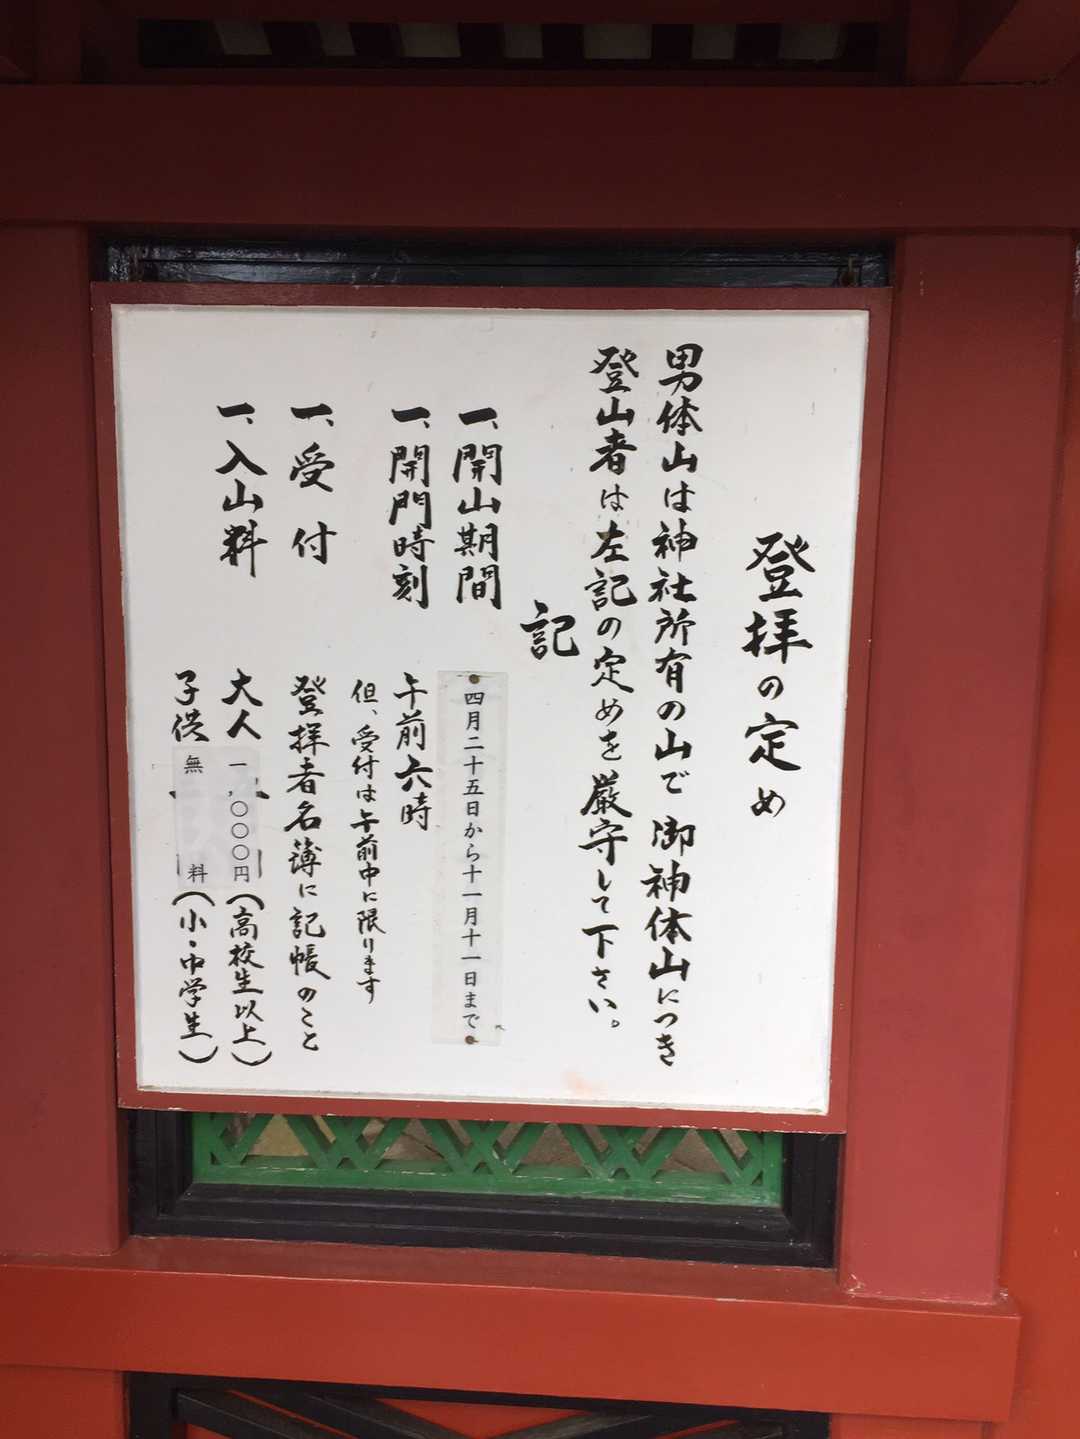 登拝の定め
男体山は神社所有の山で御神体山につき
登山者は左記の定めを厳守して下さい。
記
一、開山期間　四月二十五日から十一月十一日まで
一、開門時刻　午前六時
但、受付は午前中に限ります
一、受付　登拝者名簿に記帳のこと
一、入山料　大人　一、〇〇〇円（高校生以上）
子供　無料（小・中学生）